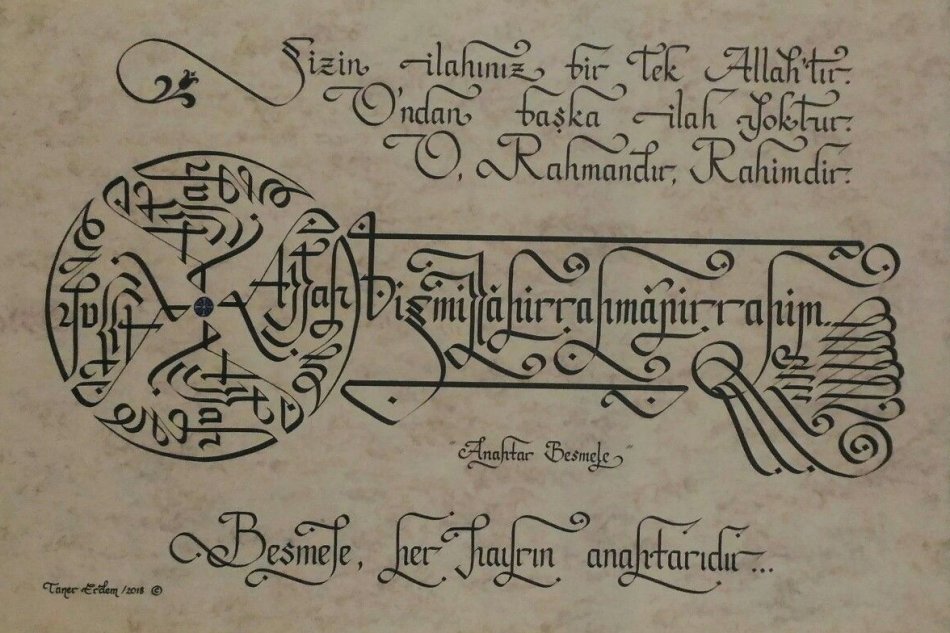 Sizin ilahınız bir tek Allah'tır.
O'ndan başka ilah yoktur.
O, Rahmandır, Rahimdir.
Allah Allah Allah Allah
Bismillâhirrahmânirrahim
"Anahtar Besmele"
Besmele, her hayrın anahtarıdır...
Taner Erdem / 2018 ©